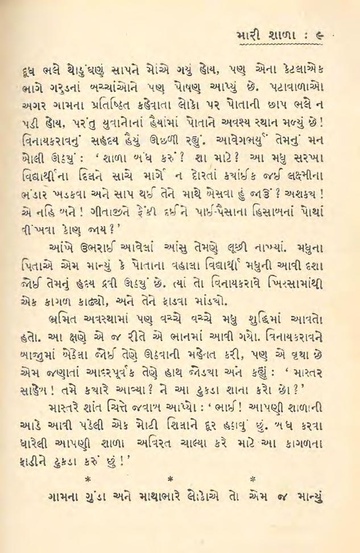 મારી શાળા : ૯
દૂધ ભલે થોડુંઘણું સાપને મોંએ ગયું હોય, પણ એના કેટલાએક
ભાગે ગરુડનાં બચ્ચાંઓને પણ પોષણ આપ્યું છે. પટાવાળાઓ
અગર ગામના પ્રતિષ્ઠિત કહેવાતા લોકો પર પોતાની છાપ ભલે ન
પડી હોય, પરંતુ યુવાનોનાં હૈયાંમાં પોતાને અવશ્ય સ્થાન મળ્યું છે!
વિનાયકરાવનું સહૃદય હૈયું ઊછળી રહ્યું. આવેગભર્યું તેમનું મન
બોલી ઊઠ્યું : ‘શાળા બંધ કરું? શા માટે? આ મધુ સરખા
વિદ્યાર્થીના દિલને સાચે માર્ગે ન દોરતાં કયાંઈક જઈ લક્ષ્મીના
ભંડાર ખડકવા અને સાપ થઈ તેને માથે બેસવા હું જાઉં? અશક્ય!
એ નહિ બને! ગીતાજીને ફેંકી દઈને પાઈ-પૈસાના હિસાબનાં પોથાં
વીંખવા કોણ જાય?’
આંખે ઉભરાઈ આવેલાં આંસુ તેમણે લૂછી નાખ્યાં. મધુના
પિતાએ એમ માન્યું કે પોતાના વહાલા વિદ્યાર્થી મધુની આવી દશા
જોઈ તેમનું હૃદય દ્રવી ઊઠ્યું છે. ત્યાં તો વિનાયકરાવે ખિસ્સામાંથી
એક કાગળ કાઢ્યો, અને તેને ફાડવા માંડ્યો.
ભ્રમિત અવસ્થામાં પણ વચ્ચે વચ્ચે મધુ શુદ્ધિમાં આવતો
હતો. આ ક્ષણે એ જ રીતે એ ભાનમાં આવી ગયો. વિનાયકરાવને
બાજુમાં બેઠેલા જોઈ તેણે ઊઠવાની મહેનત કરી, પણ એ વૃથા છે
એમ જણાતાં આદરપૂર્વક તેણે હાથ જોડ્યા અને કહ્યું : ‘માસ્તર
સાહેબ! તમે કયારે આવ્યા? ને આ ટુકડા શાના કરો છો?’
માસ્તરે શાંત ચિત્તે જવાબ આપ્યો : ‘ભાઈ! આપણી શાળાની
આડે આવી પડેલી એક મોટી શિલાને દૂર હઠાવું છું. બંધ કરવા
ધારેલી આપણી શાળા અવિરત ચાલ્યા કરે માટે આ કાગળના
ફાડીને ટુકડા કરું છું!’
* * *
ગામના ગુંડા અને માથાભારે લોકોએ તો એમ જ માન્યું